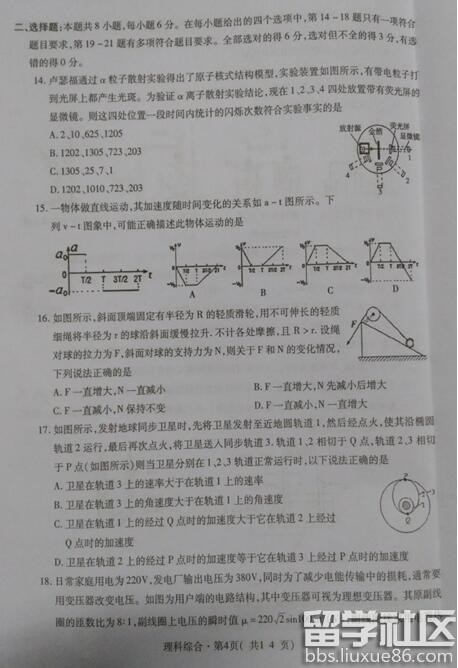 二、选择题:本题共8小题,每小题6分。在每小题给出的四个选项中,第14-18题只有一项符合
题目要求,第19-21题有多项符合题目要求。全部选对的得6分,选对但不全的得3分,有选
错的得0分。
14.卢瑟福通过α粒子散射实验得出了原子核式结构模型,实验装置如图所示,有带电粒子打
到光屏上都产生光斑。为验证α离子散射实验结论,现在1、2、3、4四处放置带有荧光屏的
显微镜。则这四处位置一段时间内统计的闪烁次数符合实验事实的是
A.2、10、625、1205
B.1202、1305、723、203
C.1305、25、7、1
D.1202、1010、723、203
放射源 金箔 荧光屏
显微镜
1
2
3
4
15.一物体做直线运动,其加速度随时间变化的关系如a-t图所示。下
列v-t图象中,可能正确描述此物体运动的是
a
a₀
0
-a₀
T/2 T 3T/2 2T t
A
B
C
D
16.如图所示,斜面顶端固定有半径为R的轻质滑轮,用不可伸长的轻质
细绳将半径为r的球沿斜面缓慢拉升.不计各处摩擦,且R>r.设绳
对球的拉力为F,斜面对球的支持力为N,则关于F和N的变化情况,
下列说法正确的是
F
A.F一直增大,N一直减小
B.F一直增大,N先减小后增大
C.F一直减小,N保持不变
D.F一直减小,N一直增大
17.如图所示,发射地球同步卫星时,先将卫星发射至近地圆轨道1,然后经点火,使其沿椭圆
轨道2运行,最后再次点火,将卫星送入同步轨道3.轨道1、2相切于Q点,轨道2、3相切
于P点(如图所示)则当卫星分别在1、2、3轨道正常运行时,以下说法正确的是
A.卫星在轨道3上的速率大于在轨道1上的速率
B.卫星在轨道3上的角速度大于在轨道1上的角速度
C.卫星在轨道1上的经过Q点时的加速度大于它在轨道2上经过
Q点时的加速度
D.卫星在轨道2上的经过P点时的加速度等于它在轨道3上经过P点时的加速度
18.日常家庭用电为220V,发电厂输出电压为380V,同时为了减少电能传输中的损耗,通常要
用变压器改变电压。如图为用户端的电路结构,其中变压器可视为理想变压器。其原副线
圈的匝数比为8:1,副线圈上电压的瞬时值μ=220√2sin10
理科综合·第4页(共14页)
留学社区
bbs.liuxue86.com